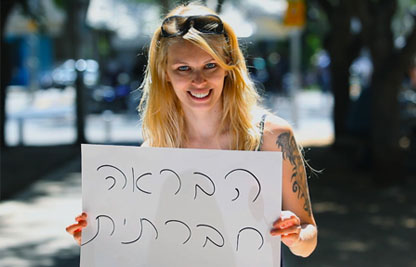 הבראה
חברתית